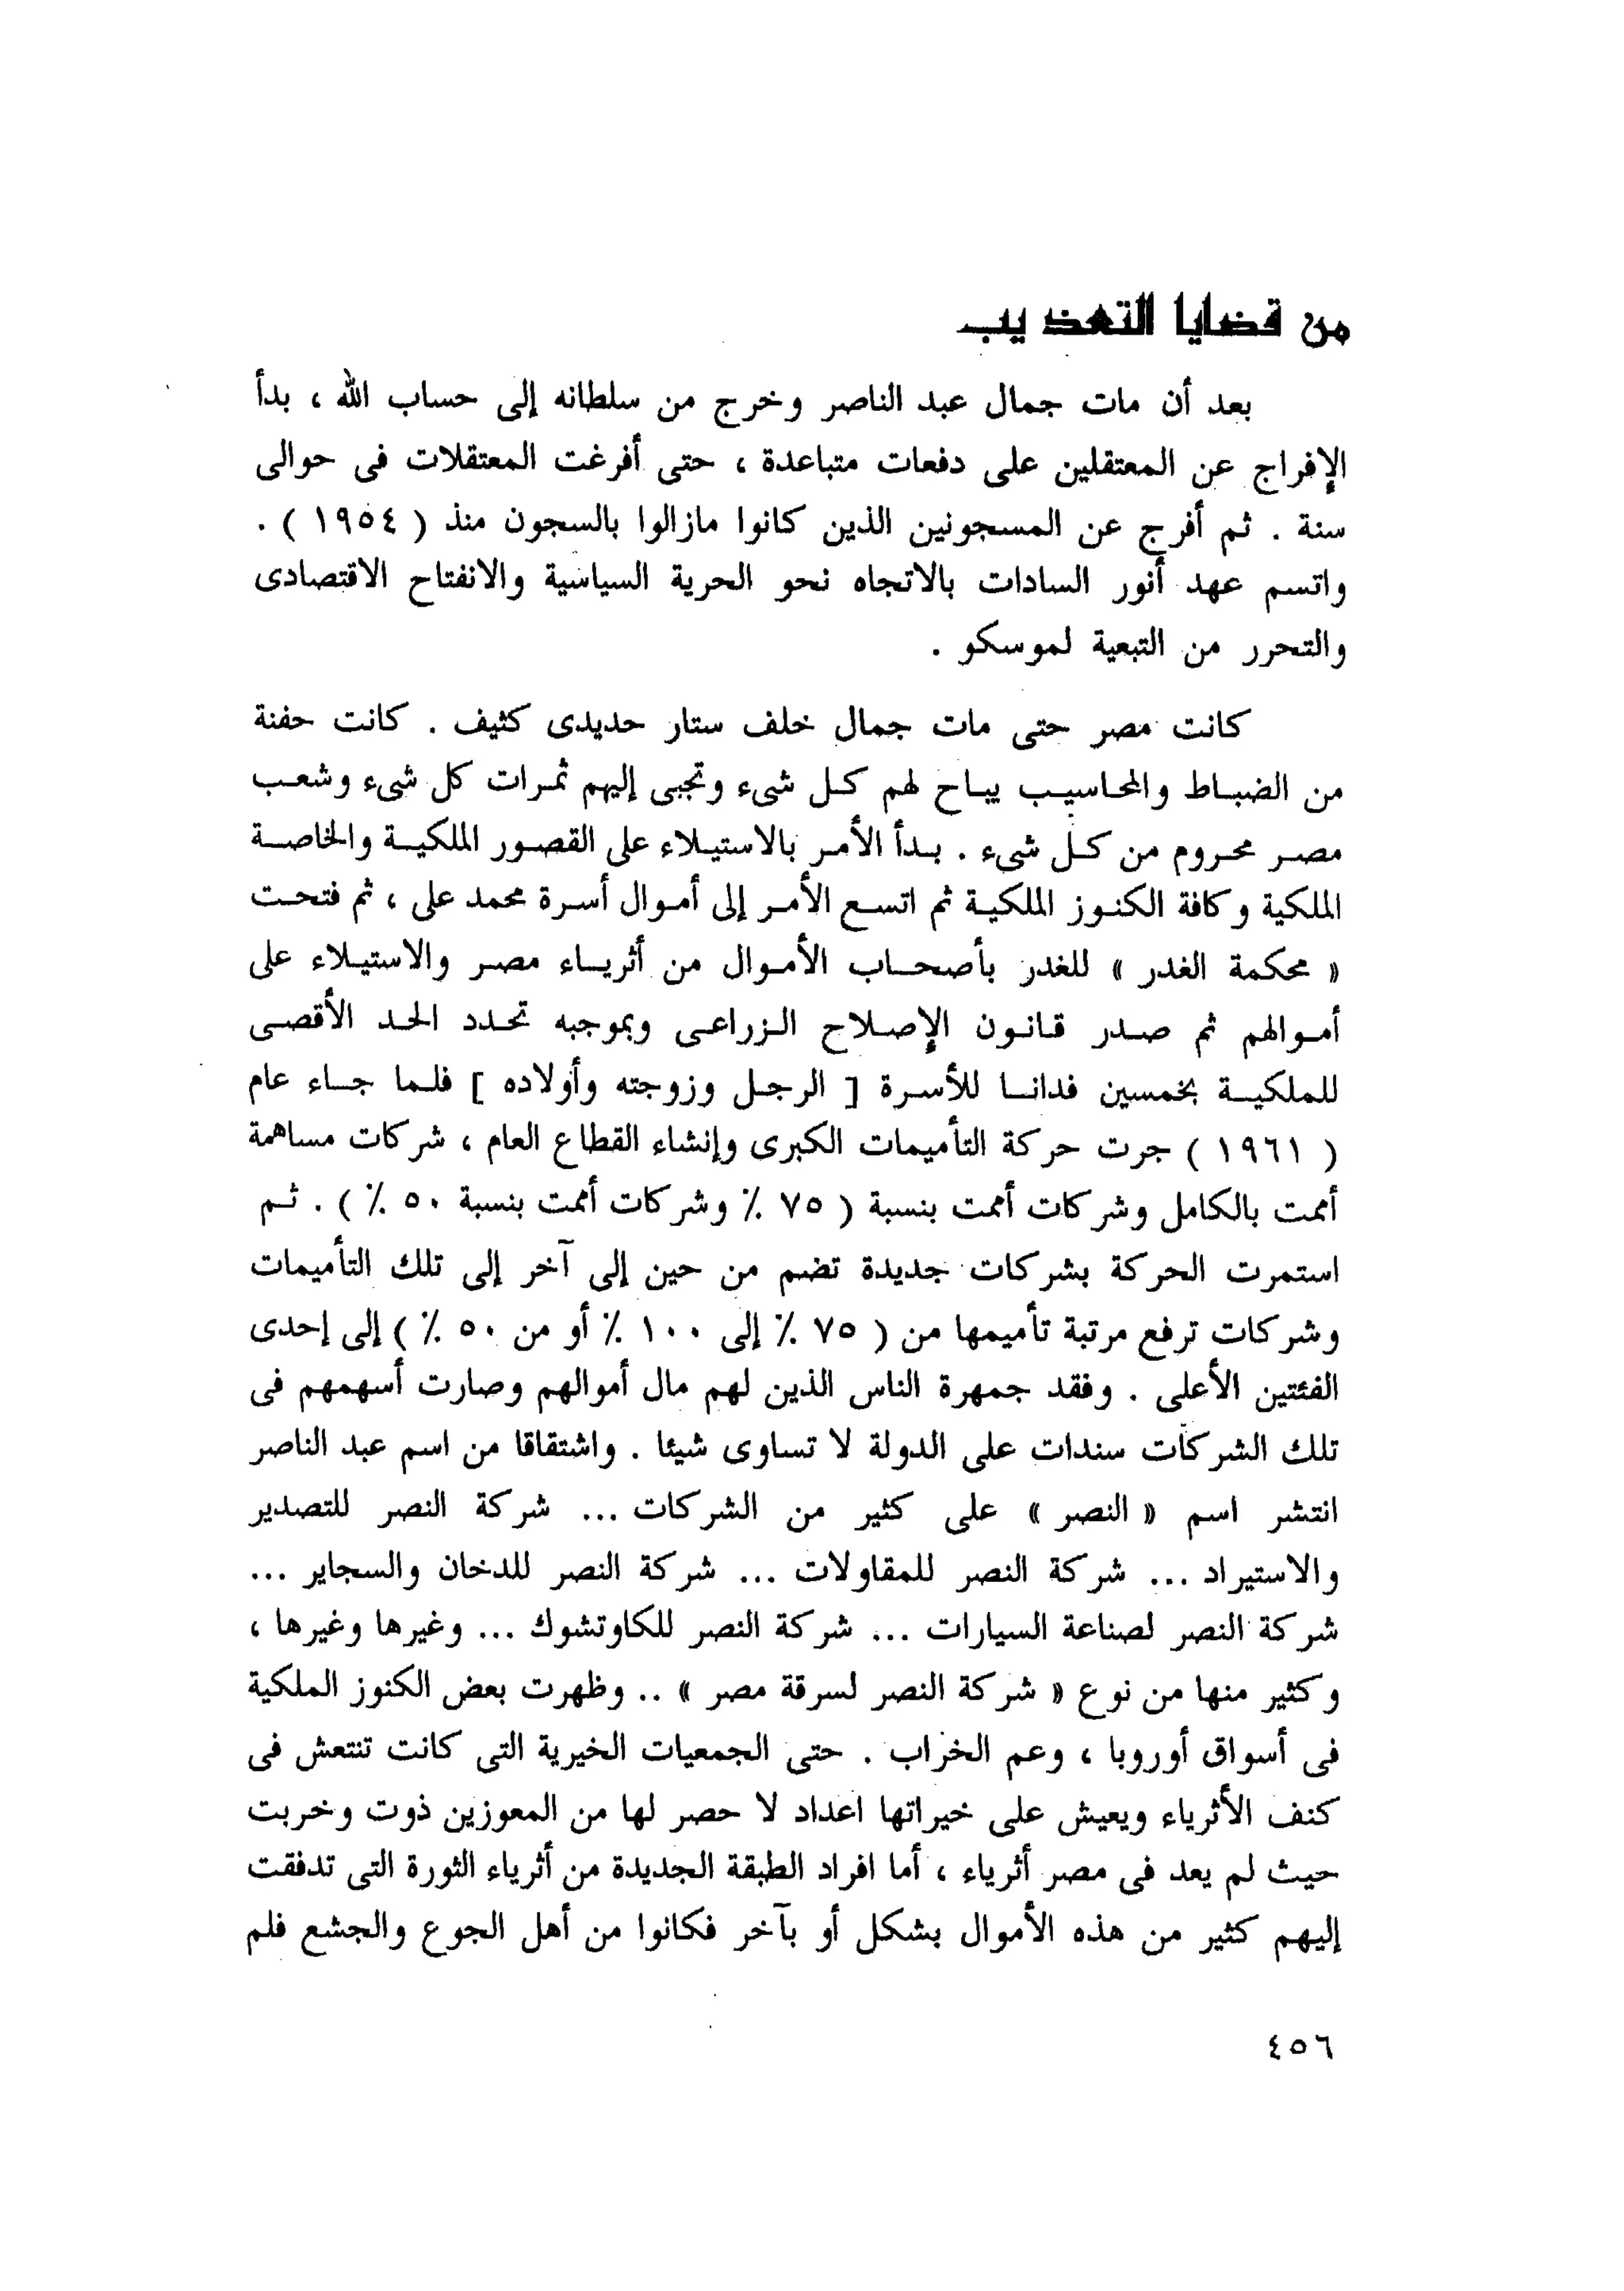 من قضايا التعذيب
بعد أن مات جمال عبد الناصر وخرج من سلطانه إلى حساب الله ، بدأ
الإفراج عن المعتقلين على دفعات متباعدة ، حتى أفرغت المعتقلات فى حوالى
سنة . ثم أفرج عن المسجونين الذين كانوا مازالوا بالسجون منذ ( ١٩٥٤ ) .
واتسم عهد أنور السادات بالاتجاه نحو الحرية السياسية والانفتاح الاقتصادى
والتحرر من التبعية لموسكو .
كانت مصر حتى مات جمال خلف ستار حديدى كثيف . كانت حفنة
من الضباط والمحاسيب يباح لهم كل شىء وتجبى إليهم ثمرات كل شىء وشعب
مصر محروم من كل شىء . بدأ الأمر بالاستيلاء على القصور الملكية والخاصة
الملكية وكافة الكنوز الملكية ثم اتسع الأمر إلى أموال أسرة محمد على ، ثم فتحت
« محكمة الغدر » للغدر بأصحاب الأموال من أثرياء مصر والاستيلاء على
أموالهم ثم صدر قانون الإصلاح الزراعى وبموجبه تحدد الحد الأقصى
للملكية بخمسين فدانا للأسرة [ الرجل وزوجته وأولاده ] فلما جاء عام
( ١٩٦١ ) جرت حركة التأميمات الكبرى وإنشاء القطاع العام ، شركات مساهمة
أممت بالكامل وشركات أممت بنسبة ( ٧٥ ٪ وشركات أممت بنسبة ٥٠ ٪ ) . ثم
استمرت الحركة بشركات جديدة تضم من حين إلى آخر إلى تلك التأميمات
وشركات ترفع مرتبة تأميمها من ( ٧٥ ٪ إلى ١٠٠ ٪ أو من ٥٠ ٪ ) إلى إحدى
الفئتين الأعلى . وفقد جمهرة الناس الذين لهم مال أموالهم وصارت أسهمهم فى
تلك الشركات سندات على الدولة لا تساوى شيئا . واشتقاقا من اسم عبد الناصر
انتشر اسم « النصر » على كثير من الشركات ... شركة النصر للتصدير
والاستيراد ... شركة النصر للمقاولات ... شركة النصر للدخان والسجاير ...
شركة النصر لصناعة السيارات ... شركة النصر للكاوتشوك ... وغيرها وغيرها ،
وكثير منها من نوع « شركة النصر لسرقة مصر » .. وظهرت بعض الكنوز الملكية
فى أسواق أوروبا ، وعم الخراب . حتى الجمعيات الخيرية التى كانت تنتعش فى
كنف الأثرياء ويعيش على خيراتها اعداد لا حصر لها من المعوزين ذوت وخربت
حيث لم يعد فى مصر أثرياء ، أما افراد الطبقة الجديدة من أثرياء الثورة التى تدفقت
إليهم كثير من هذه الأموال بشكل أو بآخر فكانوا من أهل الجوع والجشع فلم
٤٥٦